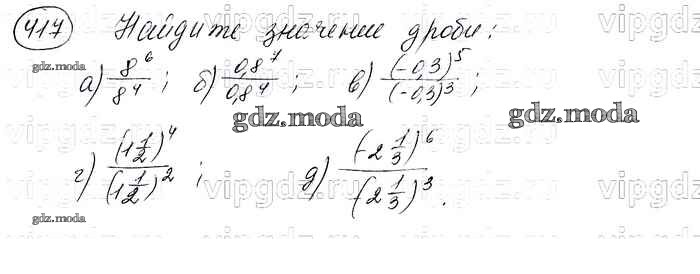 417 Найдите значение дроби:
gdz.moda а) 8^6/8^4; б) 0,8^7/0,8^4; в) (-0,3)^5/(-0,3)^3;
gdz.moda gdz.moda
г) (1 1/2)^4/(1 1/2)^2; д) (2 1/3)^6/(2 1/3)^3.
gdz.moda
vipgdz